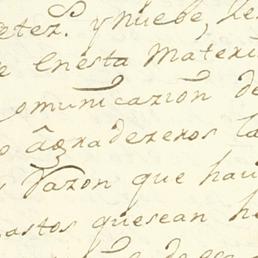 nuebe,
enesta Materi
comunicazion de
o âgradezeros la
Razon que hau
astos quesean h